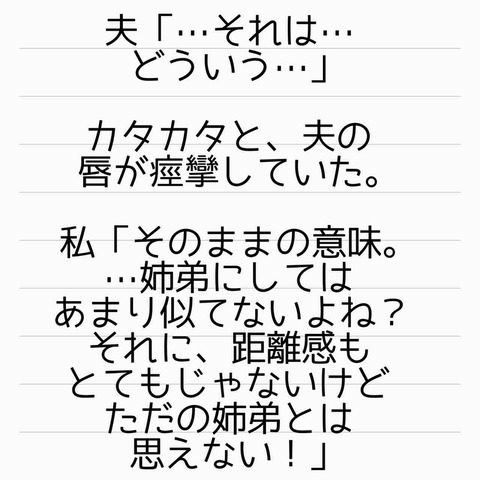 夫「…それは…
どういう…」
カタカタと、夫の
唇が痙攣していた。
私「そのままの意味。
…姉弟にしては
あまり似てないよね？
それに、距離感も
とてもじゃないけど
ただの姉弟とは
思えない！」